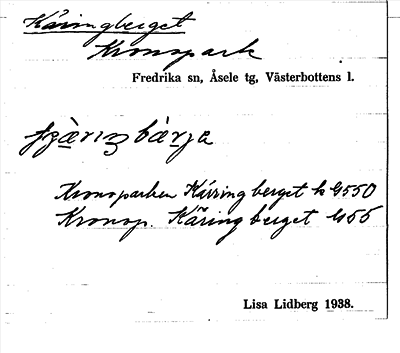 Käringberget
Kronopark
Fredrika sn, Åsele tg, Västerbottens l.
Kronoparken Käringberget
Kronop. Käringberget
Lisa Lidberg 1938.